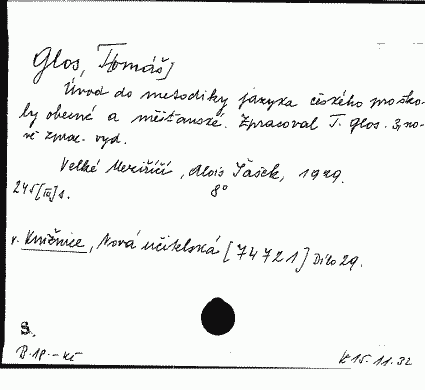 Glos, Tomáš]
Úvod do metodiky jazyka českého pro ško-
ly obecné a měšťanské. Zpracoval T. Glos. 3, no-
vě zprac. vyd.
Velké Meziříčí, Alois Šašek, 1929.
245 [III] s. 8°
v. Knižnice, Nová učitelská [74721] Dílo 29.
S.
B. 18.- Kč
15.11.32